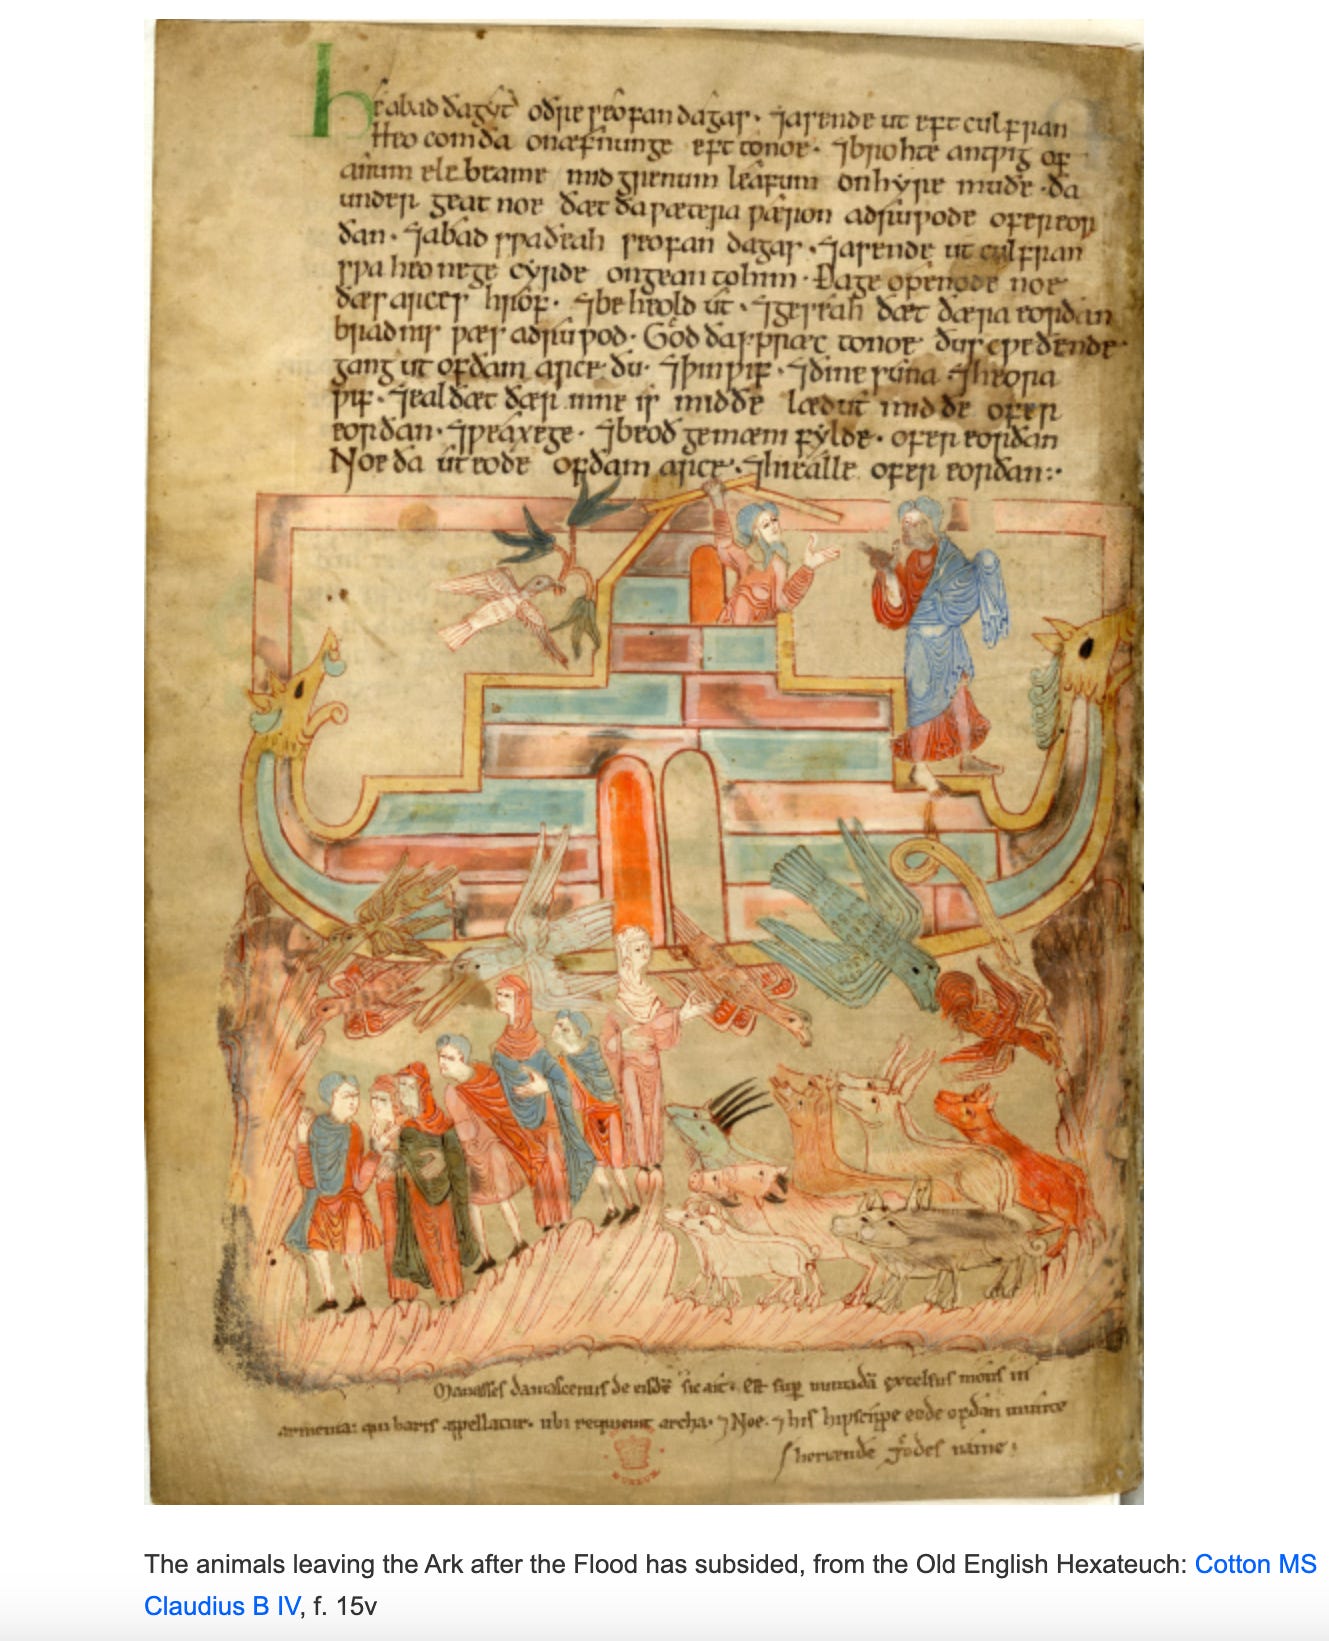 He abad ða gyt oðre seofan dagas · ⁊ asende ut eft culfran
Heo com ða on æfnunge eft to noe · ⁊ brohte an twig of
anum ele beame mid grenum leafum on hyre muðe · ða
under geat noe ðæt ða wætera wæron adruwode ofer eor
ðan · ⁊ abad swa ðeah seofan dagas · ⁊ asende ut culfran
swa heo ne ge cyrde ongean to him · Ða ge openode noe
ðæs arces hrof · ⁊ be heold ut · ⁊ geseah ðæt ðæra eorðan
bradnis wæs adruwod · God ða spræc to noe ðus cweðende
gang ut of ðam arce · ðu · ⁊ þin wif · ⁊ ðine suna ⁊ heora
wif · ⁊ eal ðæt ðær inne is mid ðe læd ut mid ðe ofer
eorðan · ⁊ weaxe ge · ⁊ beoð gemænifylde · ofer eorðan
Noe ða ut eode of ðam arce · ⁊ hi ealle ofer eorðan :·
Manasses damascenus de eisdē sic ait · est sup excelsus mons in
armenia: qui baris appellatur · ubi requieuit archa · ⁊ Noe · ⁊ his hipscipe eode of dan munte
godes name
MUSEUM
The animals leaving the Ark after the Flood has subsided, from the Old English Hexateuch: Cotton MS
Claudius B IV, f. 15v